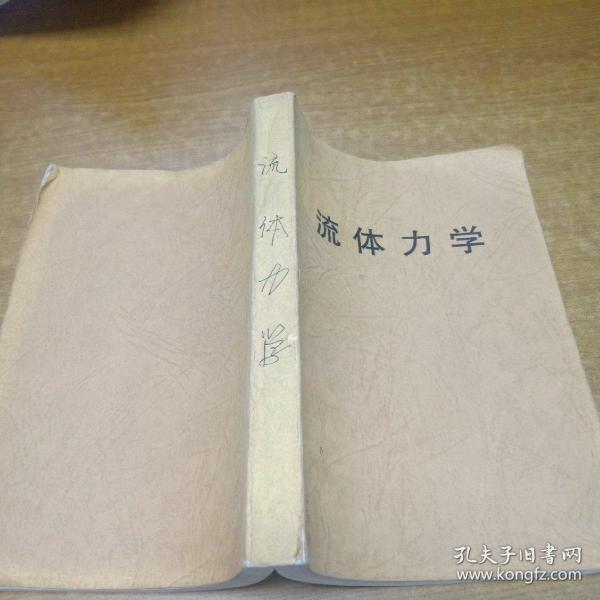 流体力学
流体力学
孔夫子旧書网
www.kongfz.com